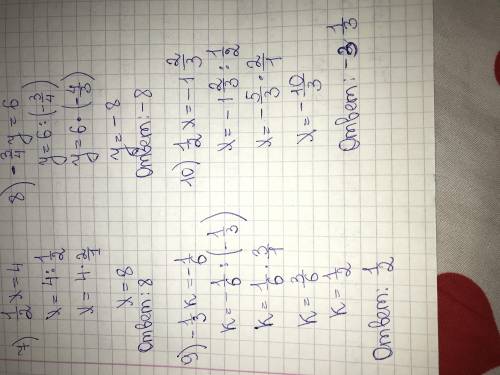 7) 1/2 x = 4
x = 4 : 1/2
x = 4 · 2/1
x = 8
Ответ: 8
8) - 3/4 y = 6
y = 6 : (- 3/4)
y = 6 · (- 4/3)
y = - 8
Ответ: - 8
9) - 1/3 к = - 1/6
к = - 1/6 : (- 1/3)
к = 1/6 · 3/1
к = 3/6
к = 1/2
Ответ: 1/2
10) 1/2 x = - 1 2/3
x = - 1 2/3 : 1/2
x = - 5/3 · 2/1
x = - 10/3
Ответ: - 3 1/3